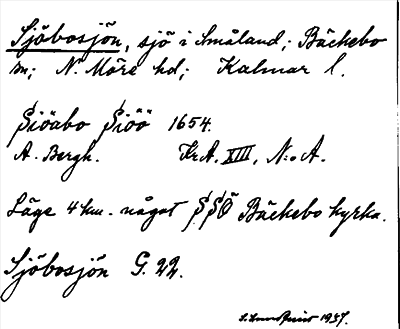 Sjöbosjön, sjö i Småland; Bäckebo
sn; N. Möre hd; Kalmar l.
Siöabo Siöö 1654.
A. Bergh. Kr.A. XIII, N:o A.
Läge 4 km. något SSÖ Bäckebo kyrka.
Sjöbosjön G. 22.
1937.